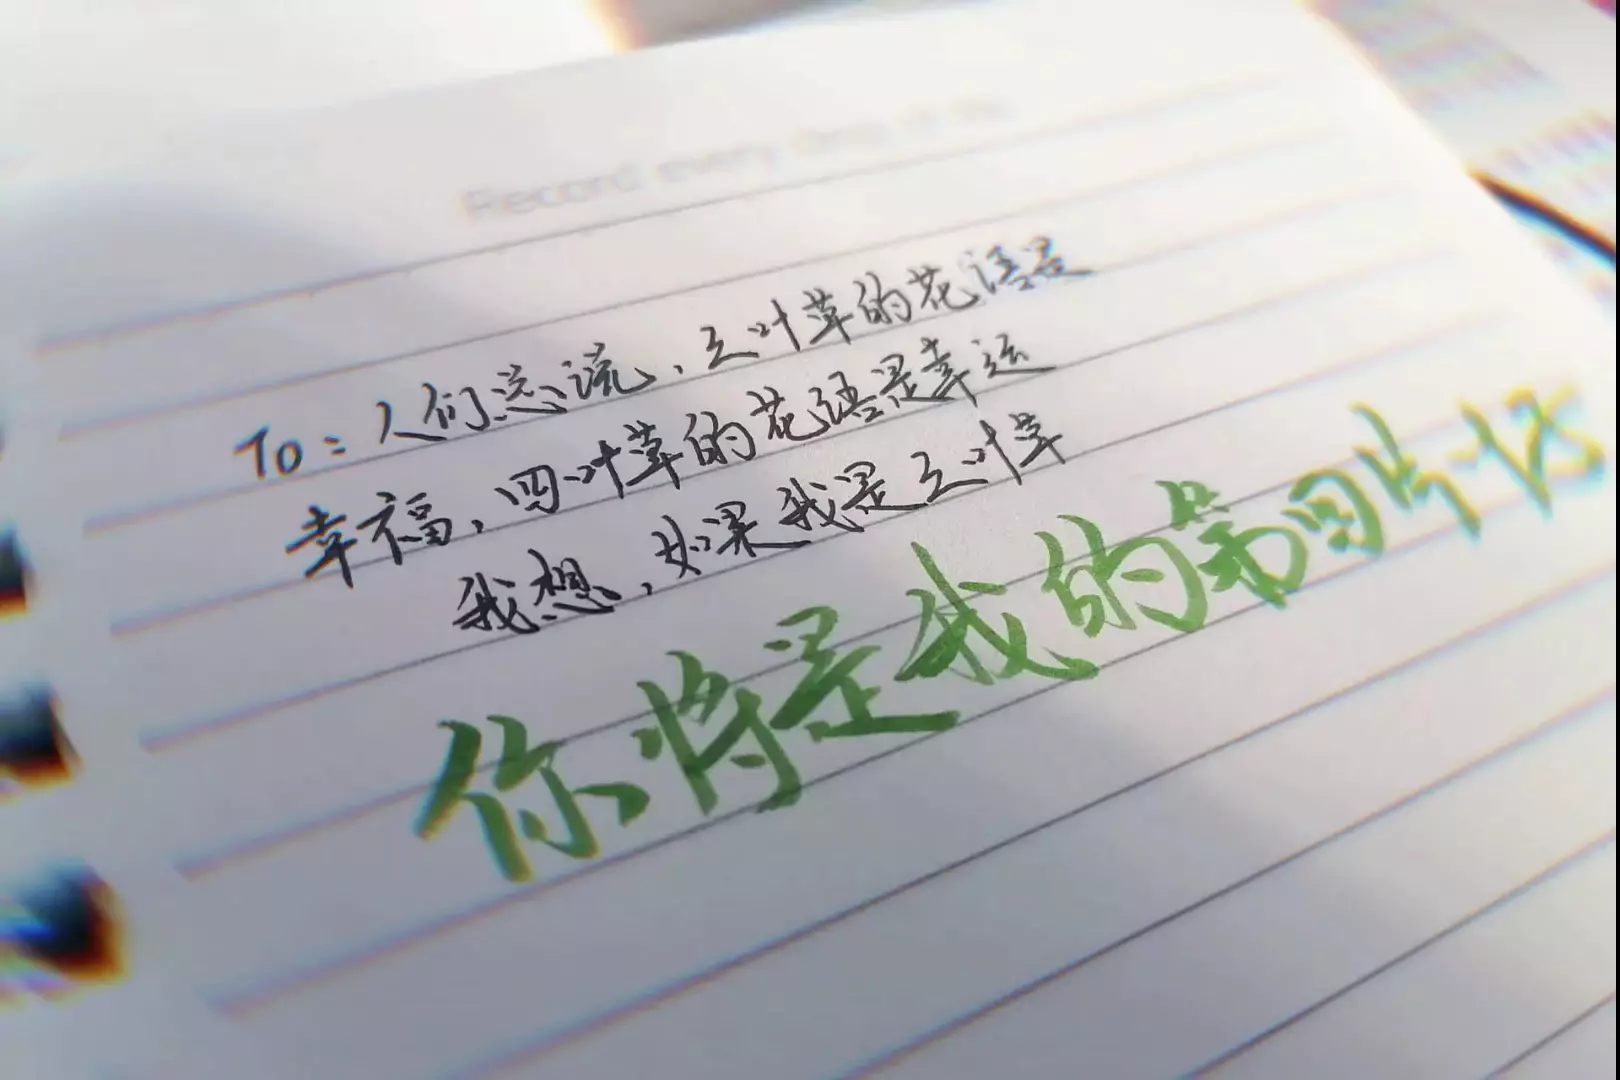 Record every
To：人们总说，三叶草的花语是
幸福，四叶草的花语是幸运
我想，如果我是三叶草
你将是我的第四片